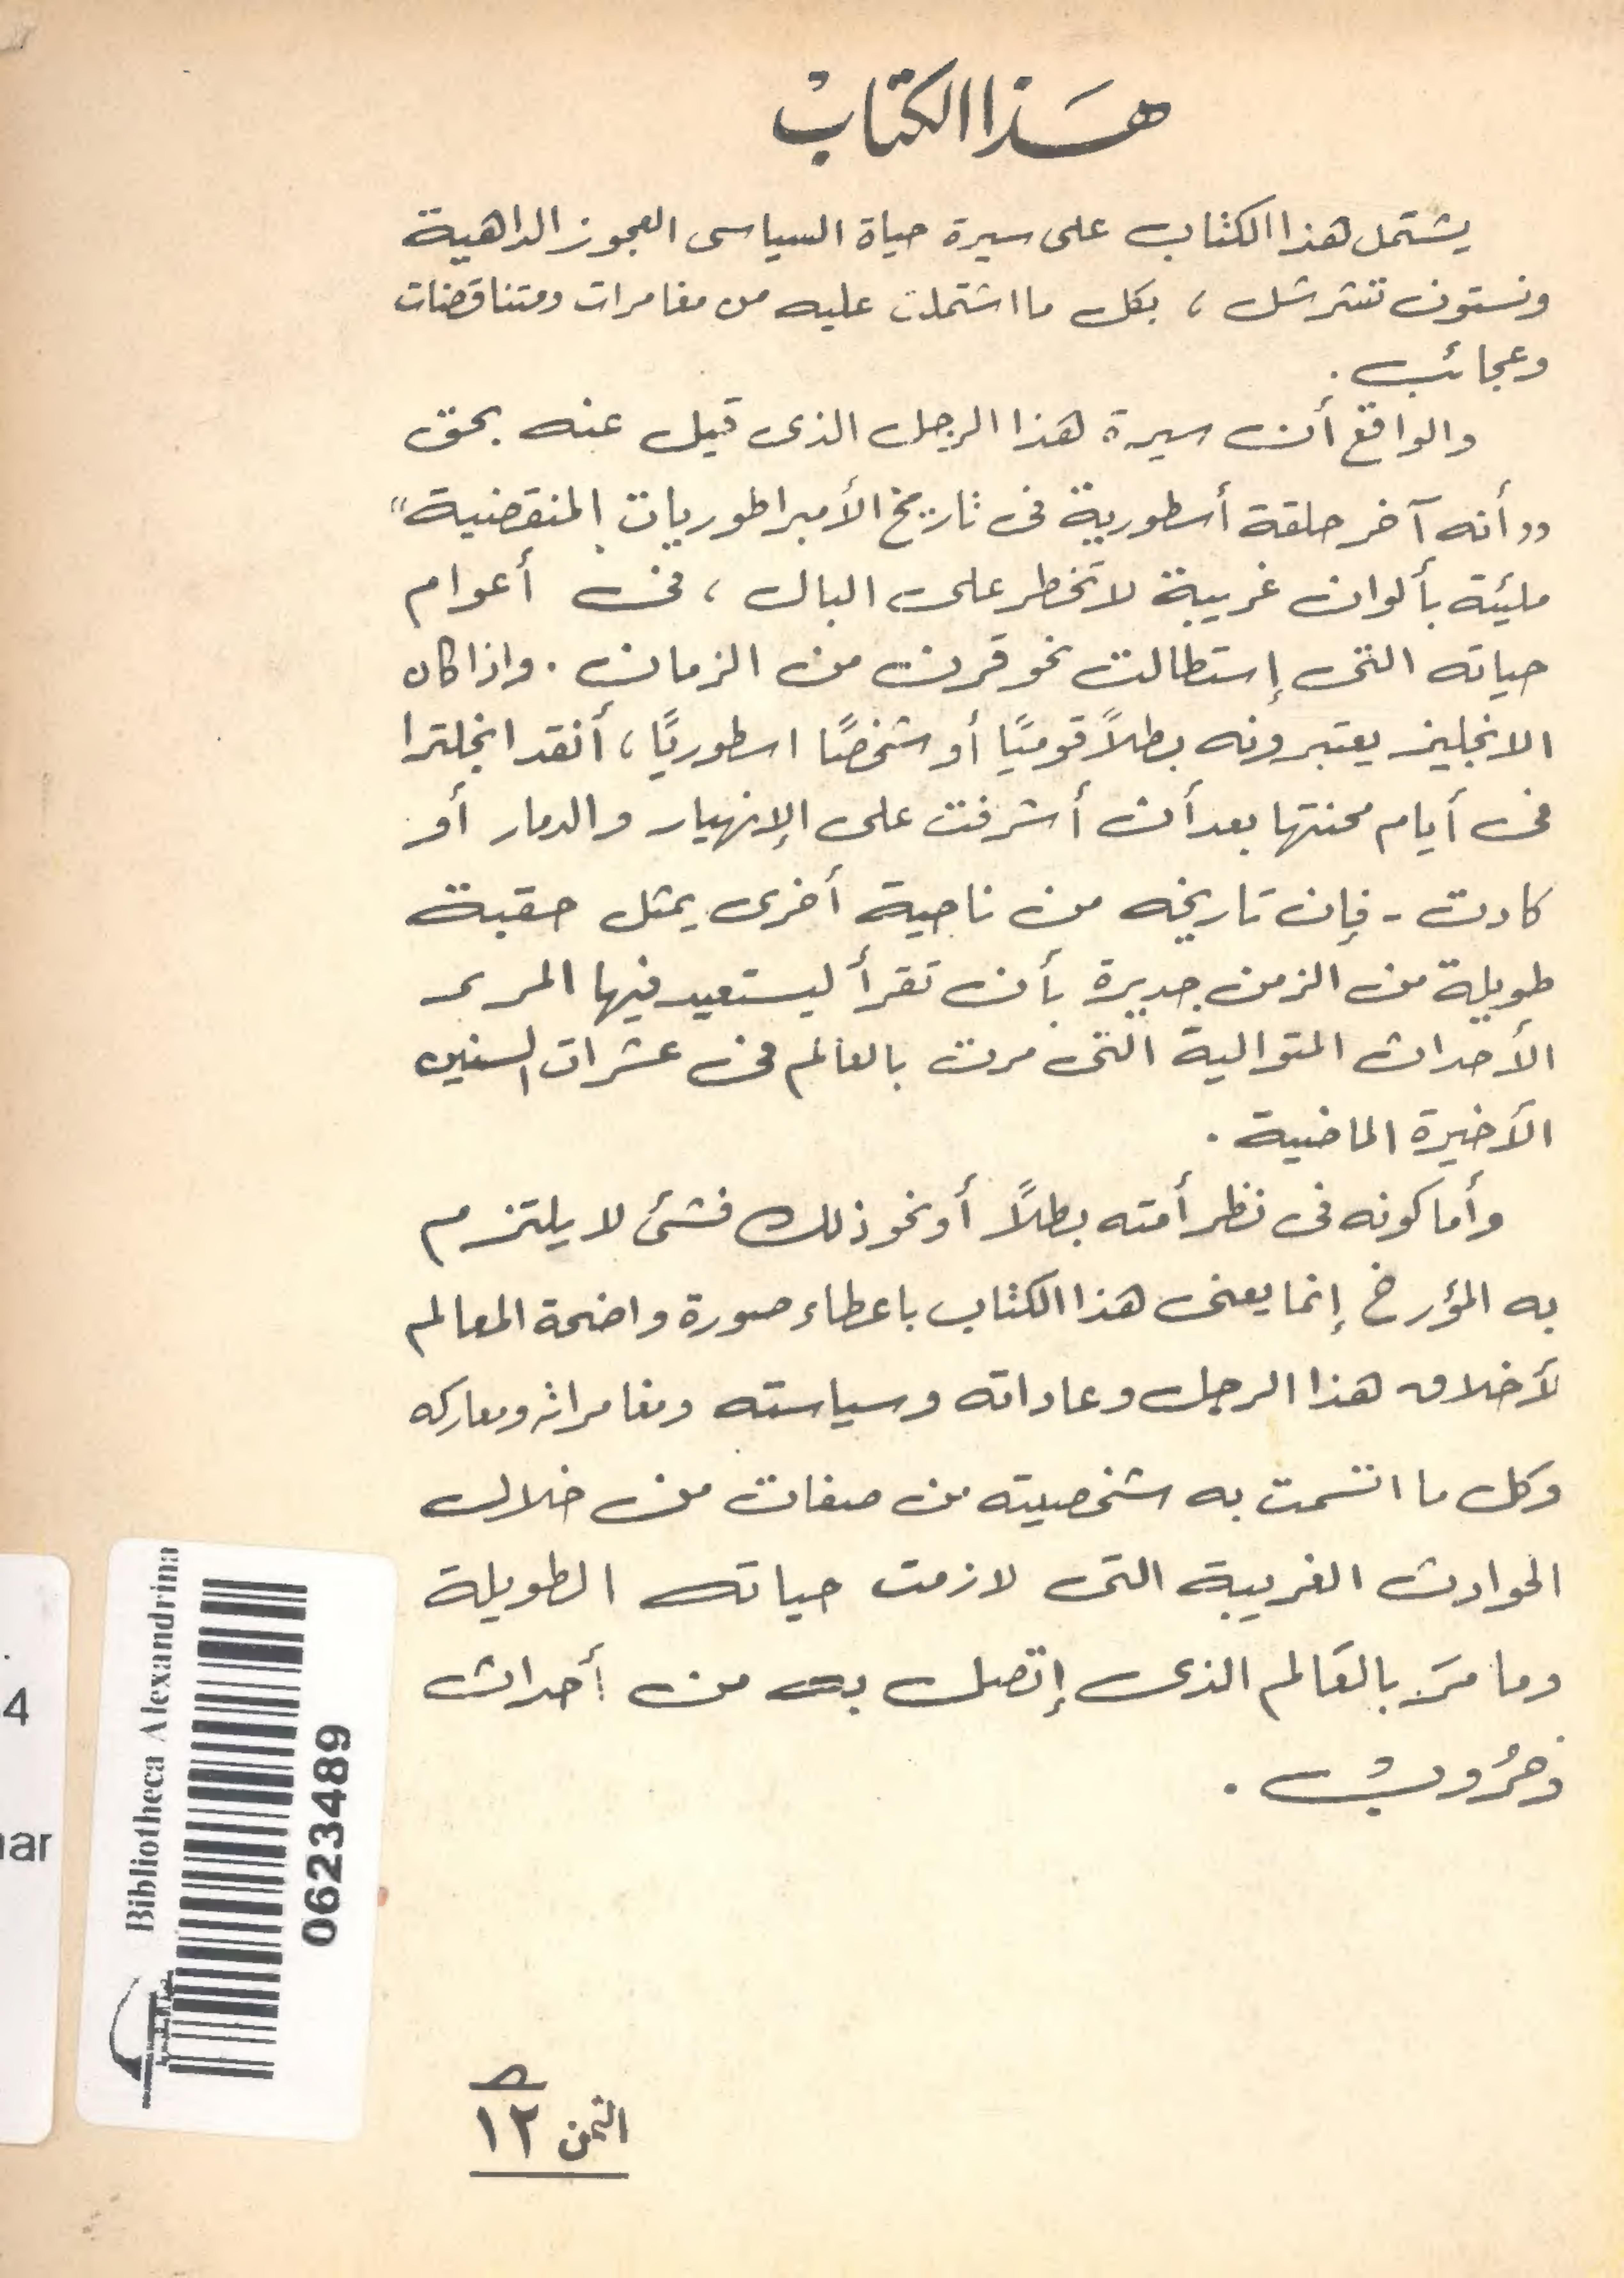 هَذا الكتابُ
يشتمل هذا الكتاب على سيرة حياة السياسى العجوز الداهية
ونستون تشرشل ، بكل ما اشتملت عليه من مغامرات ومتناقضات
وعجائب .
والواقع أن سيرة هذا الرجل الذى قيل عنه بحق
"أنه آخر حلقة أسطورية فى تاريخ الأمبراطوريات المنقضية"
مليئة بألوان غريبة لا تخطر على البال ، فى أعوام
حياته التى إستطالت نحو قرن من الزمان . واذا كان
الانجليز يعتبرونه بطلاً قوميًا أو شخصًا اسطوريًا ، أنقد انجلترا
فى أيام محنتها بعد أن أشرفت على الإنهيار والدمار أو
كادت - فإن تاريخه من ناحية أخرى يمثل حقبة
طويلة من الزمن جديرة بأن تقرأ ليستعيد فيها المرء
الأحداث المتوالية التى مرت بالعالم فى عشرات السنين
الأخيرة الماضية .
وأما كونه فى نظر أمته بطلاً أو نحو ذلك فشئ لا يلتزم
به المؤرخ إنما يعنى هذا الكتاب باعطاء صورة واضحة المعالم
لأخلاق هذا الرجل وعاداته وسياسته ومغامراته ومعاركه
وكل ما اتسمت به شخصيته من صفات من خلال
الحوادث الغريبة التى لازمت حياته الطويلة
وما مَر بالعَالم الذى إتصل به من أحداث
وَحرُوبُ .
Bibliotheca Alexandrina
0623489
4
ar
الثمن ١٢